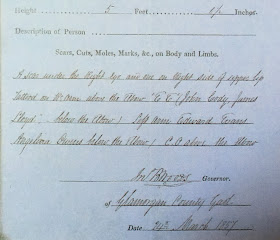 Height 5 Feet 1/2 Inches.
Description of Person
Scars, Cuts, Moles, Marks, &c., on Body and Limbs.
A scar under the Right eye and one on Right side of upper lip
Tattooed on Rt arm above the Elbow "E.E" (John Cordy James
Lloyd) below the Elbow) Left arm Edward Evans
Angelina Owens below the Elbow) C.O above the Elbow
Governor.
of Glamorgan County Gaol
Date March